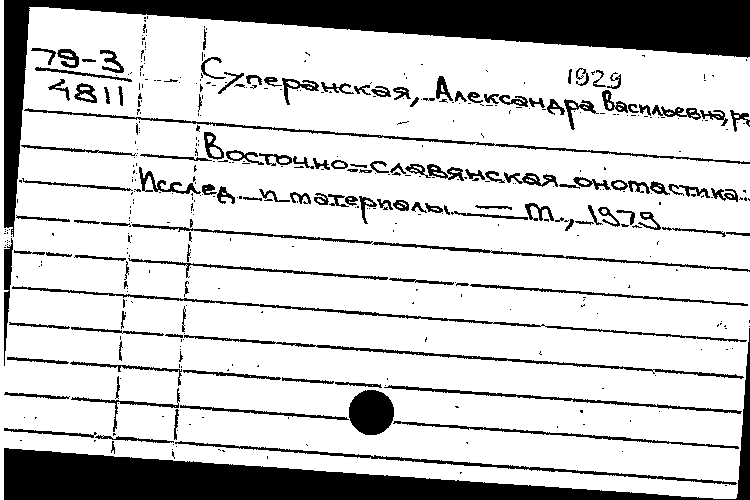 79-3
4811
1929
Суперанская, Александра Васильевна, ре
Восточно-славянская ономастика.
Исслед. и материалы. — М., 1979